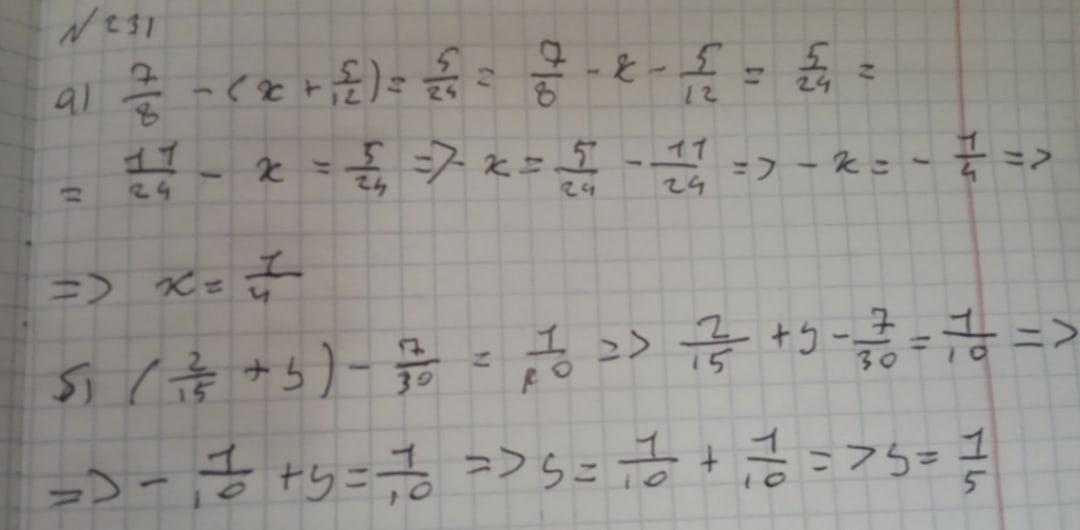 N 231
а) 7/8 - (x + 5/12) = 5/24 = 7/8 - x - 5/12 = 5/24 =
= 11/24 - x = 5/24 => - x = 5/24 - 11/24 => - x = - 1/4 =>
=> x = 1/4
б) (2/15 + y) - 7/30 = 1/10 => 2/15 + y - 7/30 = 1/10 =>
=> - 1/10 + y = 1/10 => y = 1/10 + 1/10 => y = 1/5